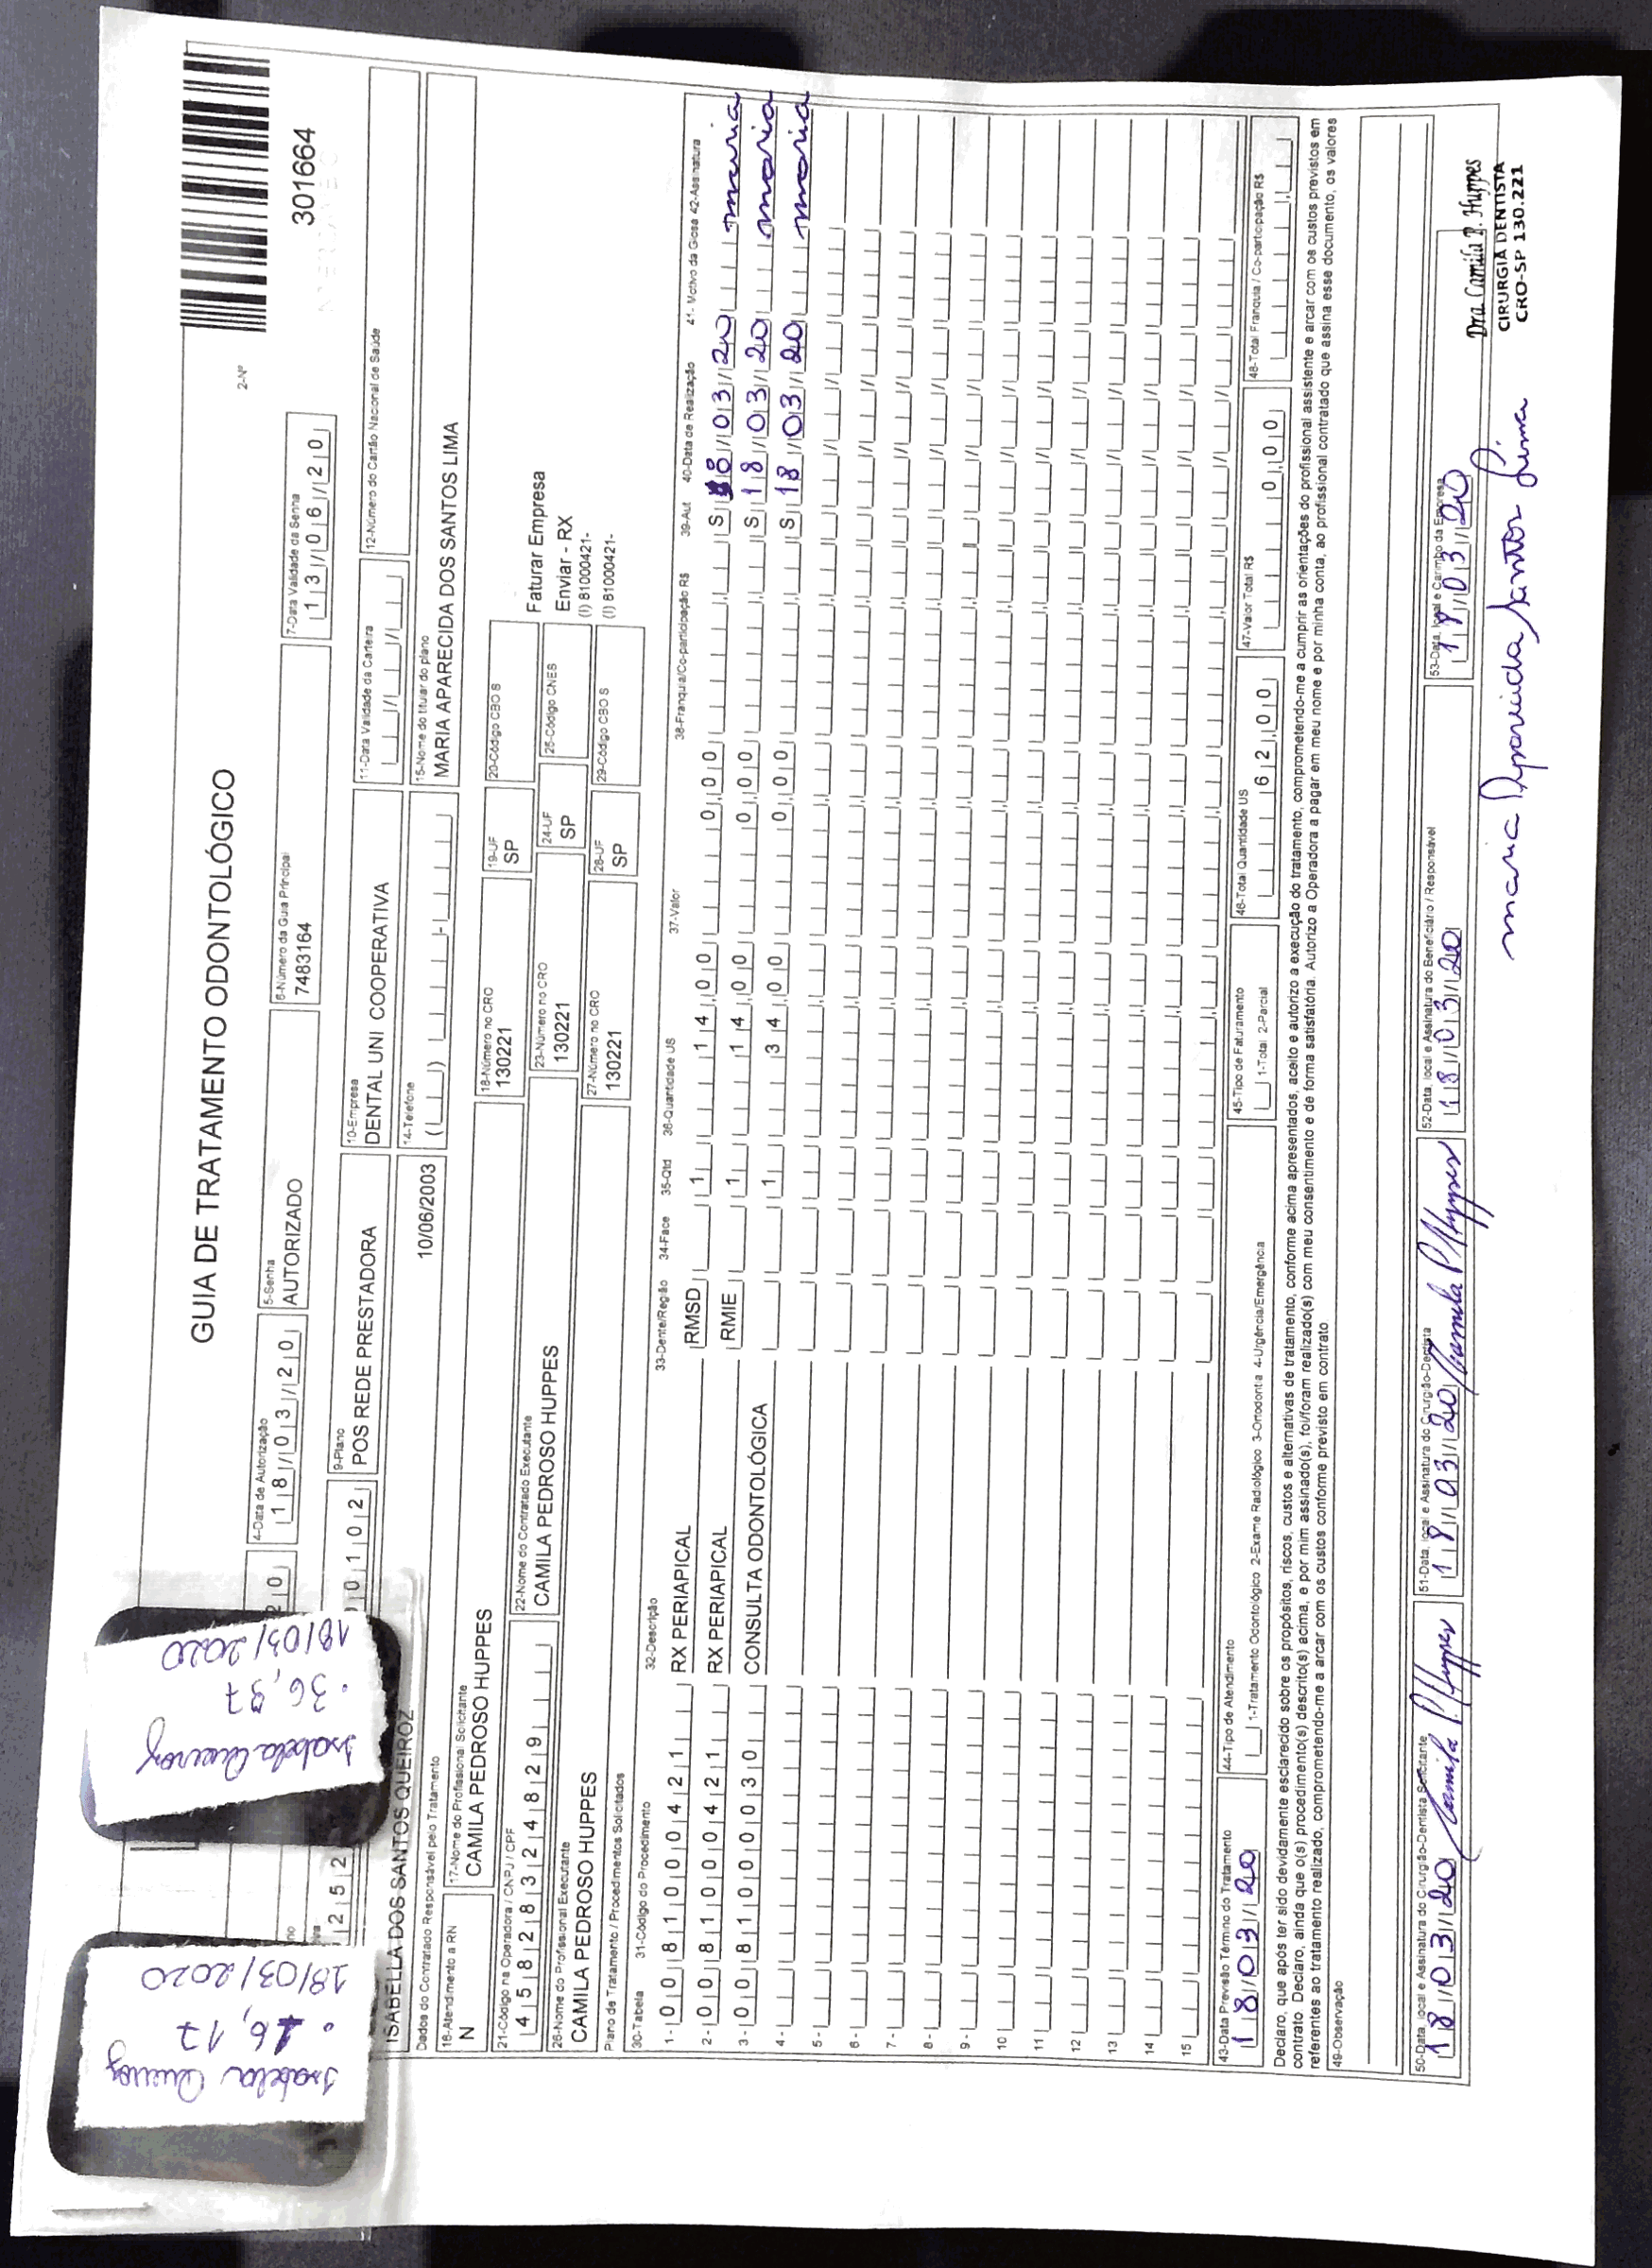 GUIA DE TRATAMENTO ODONTOLÓGICO
2-Nº
301664
4-Data de Autorização
18/03/20
5-Senha
AUTORIZADO
6-Número da Guia Principal
7483164
7-Data Validade da Senha
13/06/20
2 5 2
0 1 0 2
9-Plano
POS REDE PRESTADORA
10-Empresa
DENTAL UNI COOPERATIVA
11-Data Validade da Carteira
12-Número do Cartão Nacional de Saúde
ISABELLA DOS SANTOS QUEIROZ
10/06/2003
14-Telefone
15-Nome do titular do plano
MARIA APARECIDA DOS SANTOS LIMA
Isabela Queiroz
16,17
18/03/2020
Isabela Queiroz
36,37
18/03/2020
Dados do Contratado Responsável pelo Tratamento
16-Atendimento a RN
N
17-Nome do Profissional Solicitante
CAMILA PEDROSO HUPPES
18-Número no CRO
130221
19-UF
SP
20-Código CBO S
21-Código na Operadora / CNPJ / CPF
45828324829
22-Nome do Contratado Executante
CAMILA PEDROSO HUPPES
23-Número no CRO
130221
24-UF
SP
25-Código CNES
26-Nome do Profissional Executante
CAMILA PEDROSO HUPPES
27-Número no CRO
130221
28-UF
SP
29-Código CBO S
Faturar Empresa
Enviar - RX
(I) 81000421-
(I) 81000421-
Plano de Tratamento / Procedimentos Solicitados
30-Tabela 31-Código do Procedimento 32-Descrição 33-Dente/Região 34-Face 35-Qtd 36-Quantidade US 37-Valor 38-Franquia/Co-participação R$ 39-Aut 40-Data de Realização 41-Motivo da Glosa 42-Assinatura
1- 00 81000421 RX PERIAPICAL RMSD 1 14,00 0,00 S 18/03/20 maria
2- 00 81000421 RX PERIAPICAL RMIE 1 14,00 0,00 S 18/03/20 maria
3- 00 81000030 CONSULTA ODONTOLÓGICA 1 34,00 0,00 S 18/03/20 maria
4-
5-
6-
7-
8-
9-
10
11
12
13
14
15
43-Data Previsão Término do Tratamento
18/03/20
44-Tipo de Atendimento
1-Tratamento Odontológico 2-Exame Radiológico 3-Ortodontia 4-Urgência/Emergência
45-Tipo de Faturamento
1-Total 2-Parcial
46-Total Quantidade US
62,00
47-Valor Total R$
0,00
48-Total Franquia / Co-participação R$
Declaro, que após ter sido devidamente esclarecido sobre os propósitos, riscos, custos e alternativas de tratamento, conforme acima apresentados, aceito e autorizo a execução do tratamento, comprometendo-me a cumprir as orientações do profissional assistente e arcar com os custos previstos em
contrato. Declaro, ainda que o(s) procedimento(s) descrito(s) acima, e por mim assinado(s), foi/foram realizado(s) com meu consentimento e de forma satisfatória. Autorizo a Operadora a pagar em meu nome e por minha conta, ao profissional contratado que assina esse documento, os valores
referentes ao tratamento realizado, comprometendo-me a arcar com os custos conforme previsto em contrato
49-Observação
50-Data, local e Assinatura do Cirurgião-Dentista Solicitante
18/03/20 Camila P. Huppes
51-Data, local e Assinatura do Cirurgião-Dentista
18/03/20 Camila P Huppes
52-Data, local e Assinatura do Beneficiário / Responsável
18/03/20
53-Data, local e Carimbo da Empresa
18/03/20
maria Aparecida Santos Lima
Dra Camila P. Huppes
CIRURGIÃ DENTISTA
CRO-SP 130.221